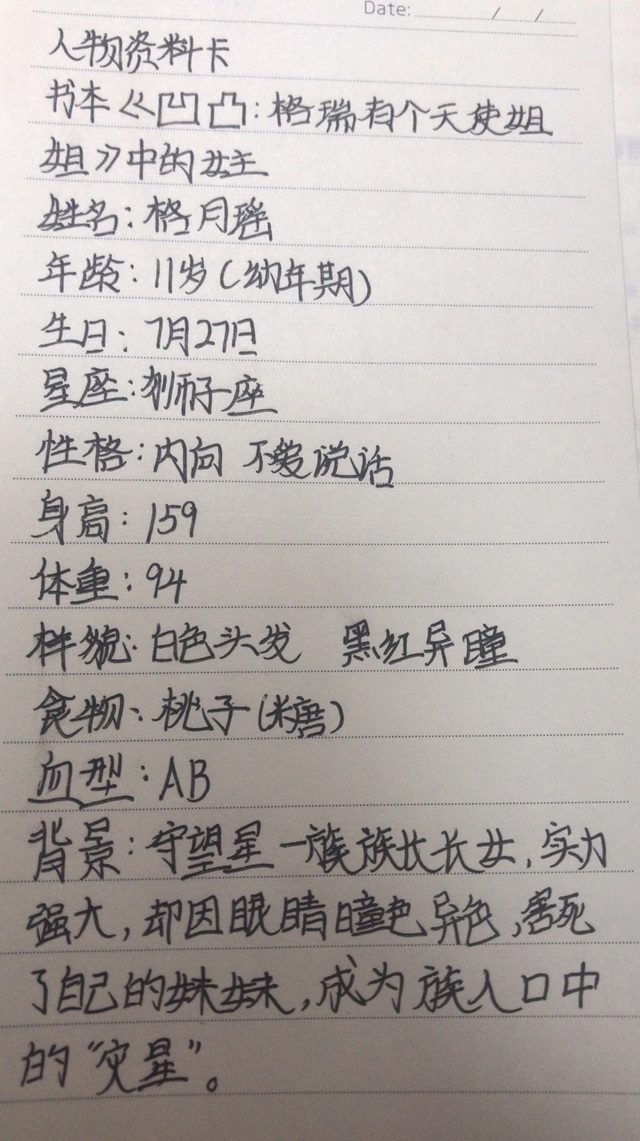 Date: / /
人物资料卡
书本《凹凸:格瑞有个天使姐
姐》中的女主
姓名:格月瑶
年龄:11岁(幼年期)
生日:7月27日
星座:狮子座
性格:内向 不爱说话
身高:159
体重:94
样貌:白色头发 黑红异瞳
食物:桃子(糖)
血型:AB
背景:守望星一族族长长女,实力
强大,却因眼睛瞳色异色,害死
了自己的妹妹,成为族人口中
的“灾星”。